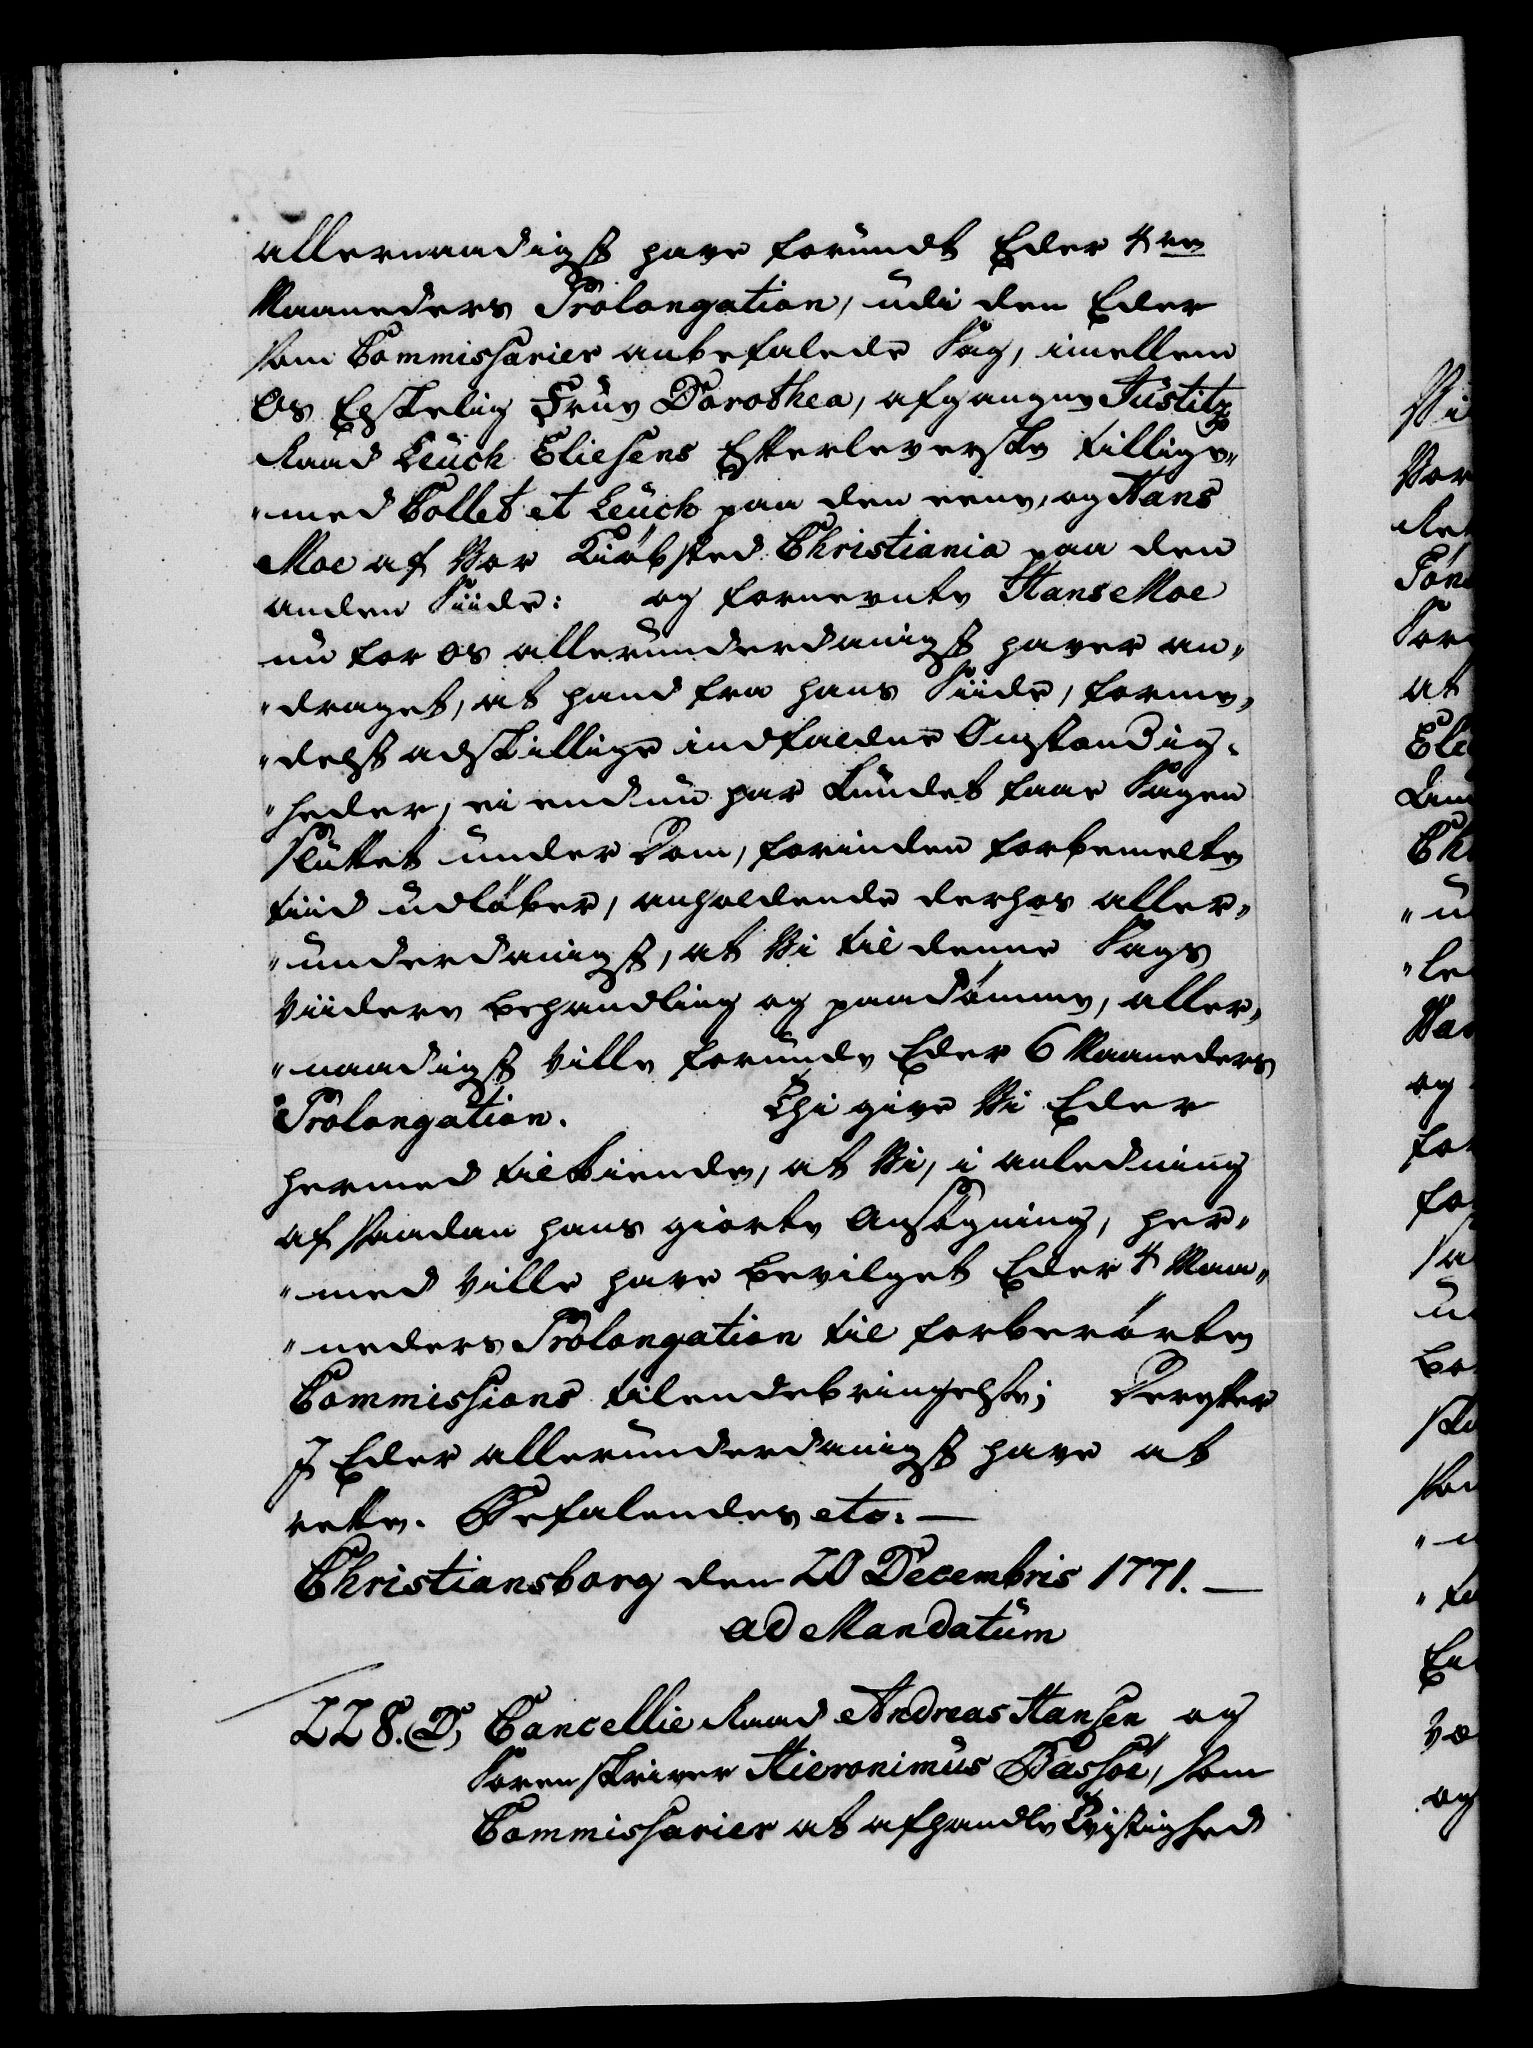 allernaadigst have forundt Eder 4re
Maaneders Prolongation, udi den Eder
som Commissarier anbefalede Sag, imellem
Os Elskelig Frue Dorothea, afgangne Justitz
Raad Leuch Eliesens Efterleverske tillige„
„med Collet et Leuch paa den eene, og Hans
Moe af Vor Kiøbsted Christiania paa den
anden Siide: og fornevnte Hans Moe
nu for os allerunderdanigst haver an„
„draget, at hand fra hans Siide, forme„
„delst adskillige indfaldne Omstændig„
„heder, ei endnu har kundet faae Sagen
sluttet under Dom, forinden forbemelte
tiid udløber, anholdende derhos aller„
„underdanigst, at Vi til denne Sags
Viidere behandling og paadømme, aller„
„naadigst ville forunde Eder 6 Maaneders
Prolongation. Thi give Vi Eder
hermed tilkiende, at Vi, i anledning
af saadan hans giorte Ansøgning, her„
„med ville have bevilget Eder 4 Maa„
„neders Prolongation til forberørte
Commissions tilendebringelse; Derefter
I Eder allerunderdanigst have at
rette. Befalendes etc: —
Christiansborg den 20 Decembris 1771. —
ad Mandatum
228. D, Cancellie Raad Andreas Hansen og
Sorenskriver Hieronimus Bassøe, som
Commissarier at afhandle Tvistighed